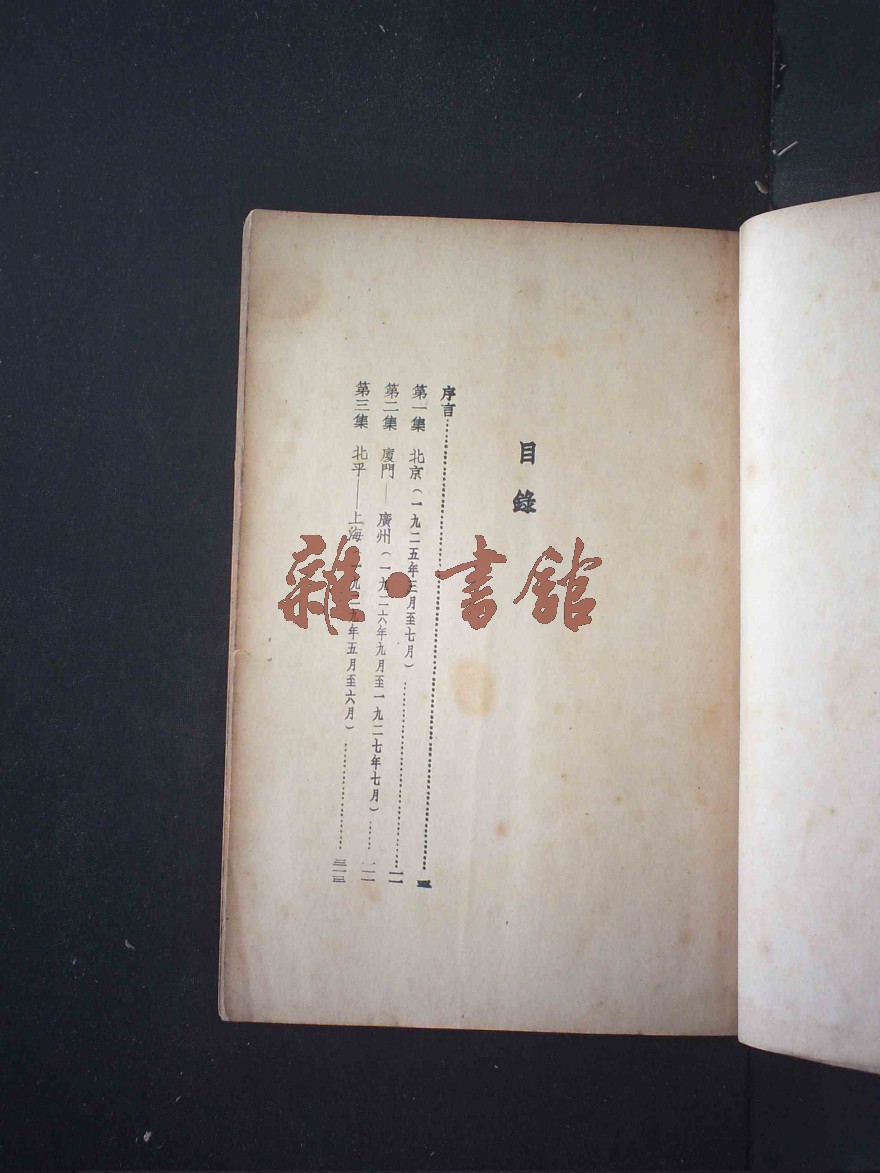 目錄
序言
第一集 北京(一九二五年三月至七月)
第二集 廈門——廣州(一九二六年九月至一九二七年七月)
第三集 北平——上海(一九二九年五月至六月)
雜·書館